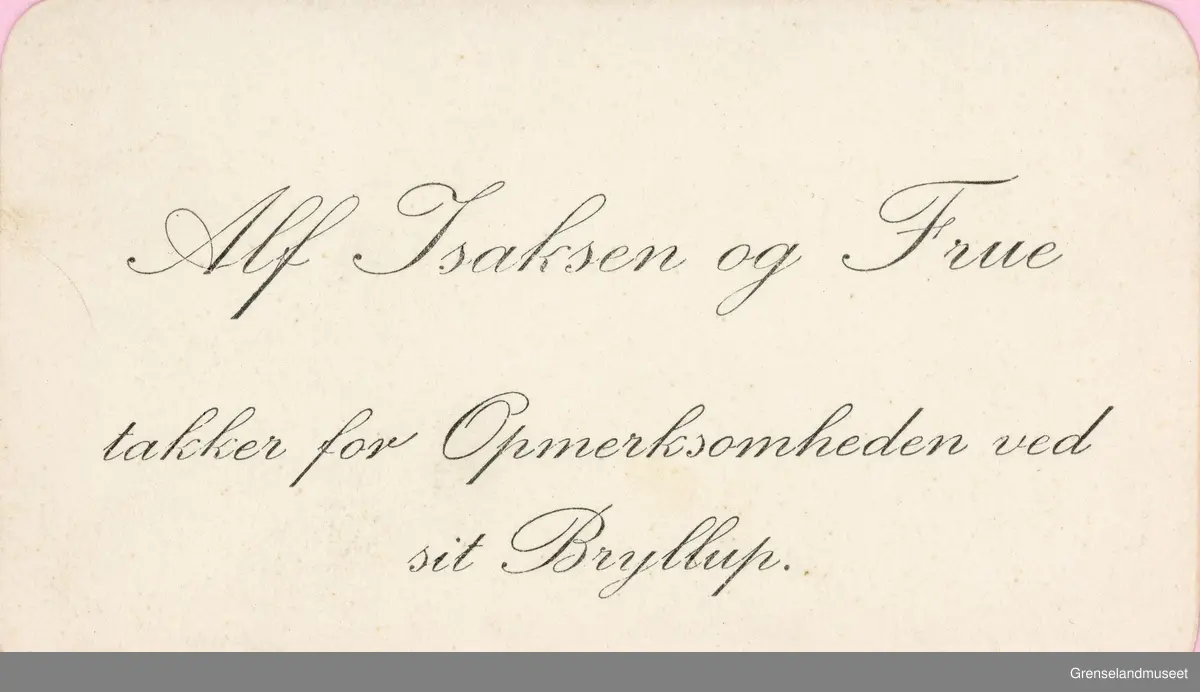 Alf Isaksen og Frue
takker for Opmerksomheden ved
sit Bryllup.
Grenselandmuseet